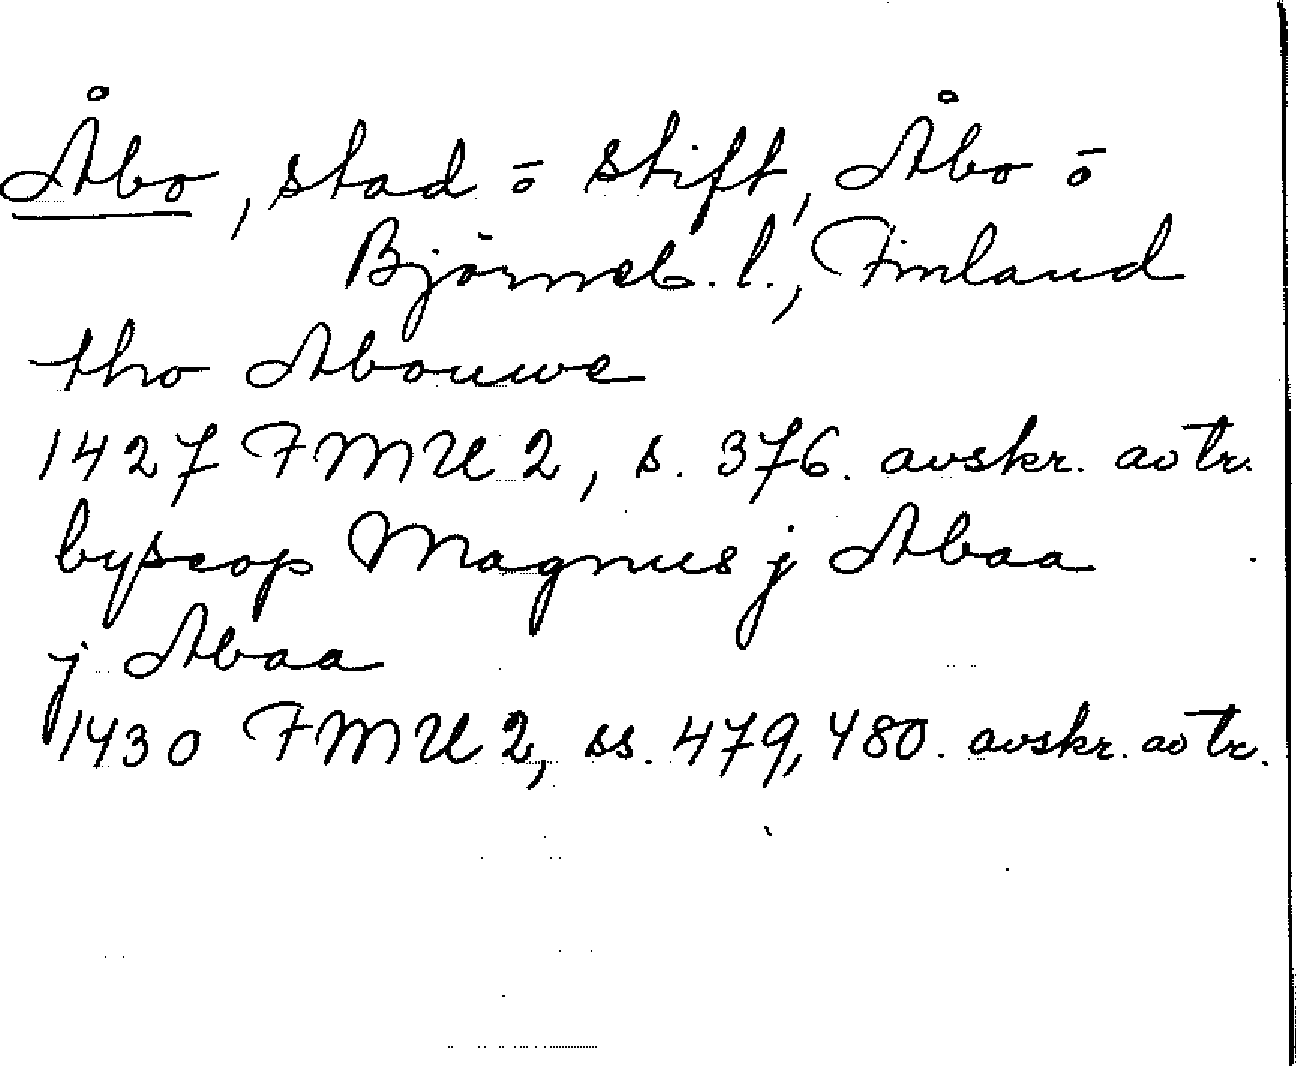 Åbo, stad o stift, Åbo o
Björneb. l., Finland
tho Abouwe
1427 FMU 2, s. 376. avskr. av tr.
byscop Magnus j Abaa
j Abaa
1430 FMU 2, ss. 479, 480. avskr. av tr.